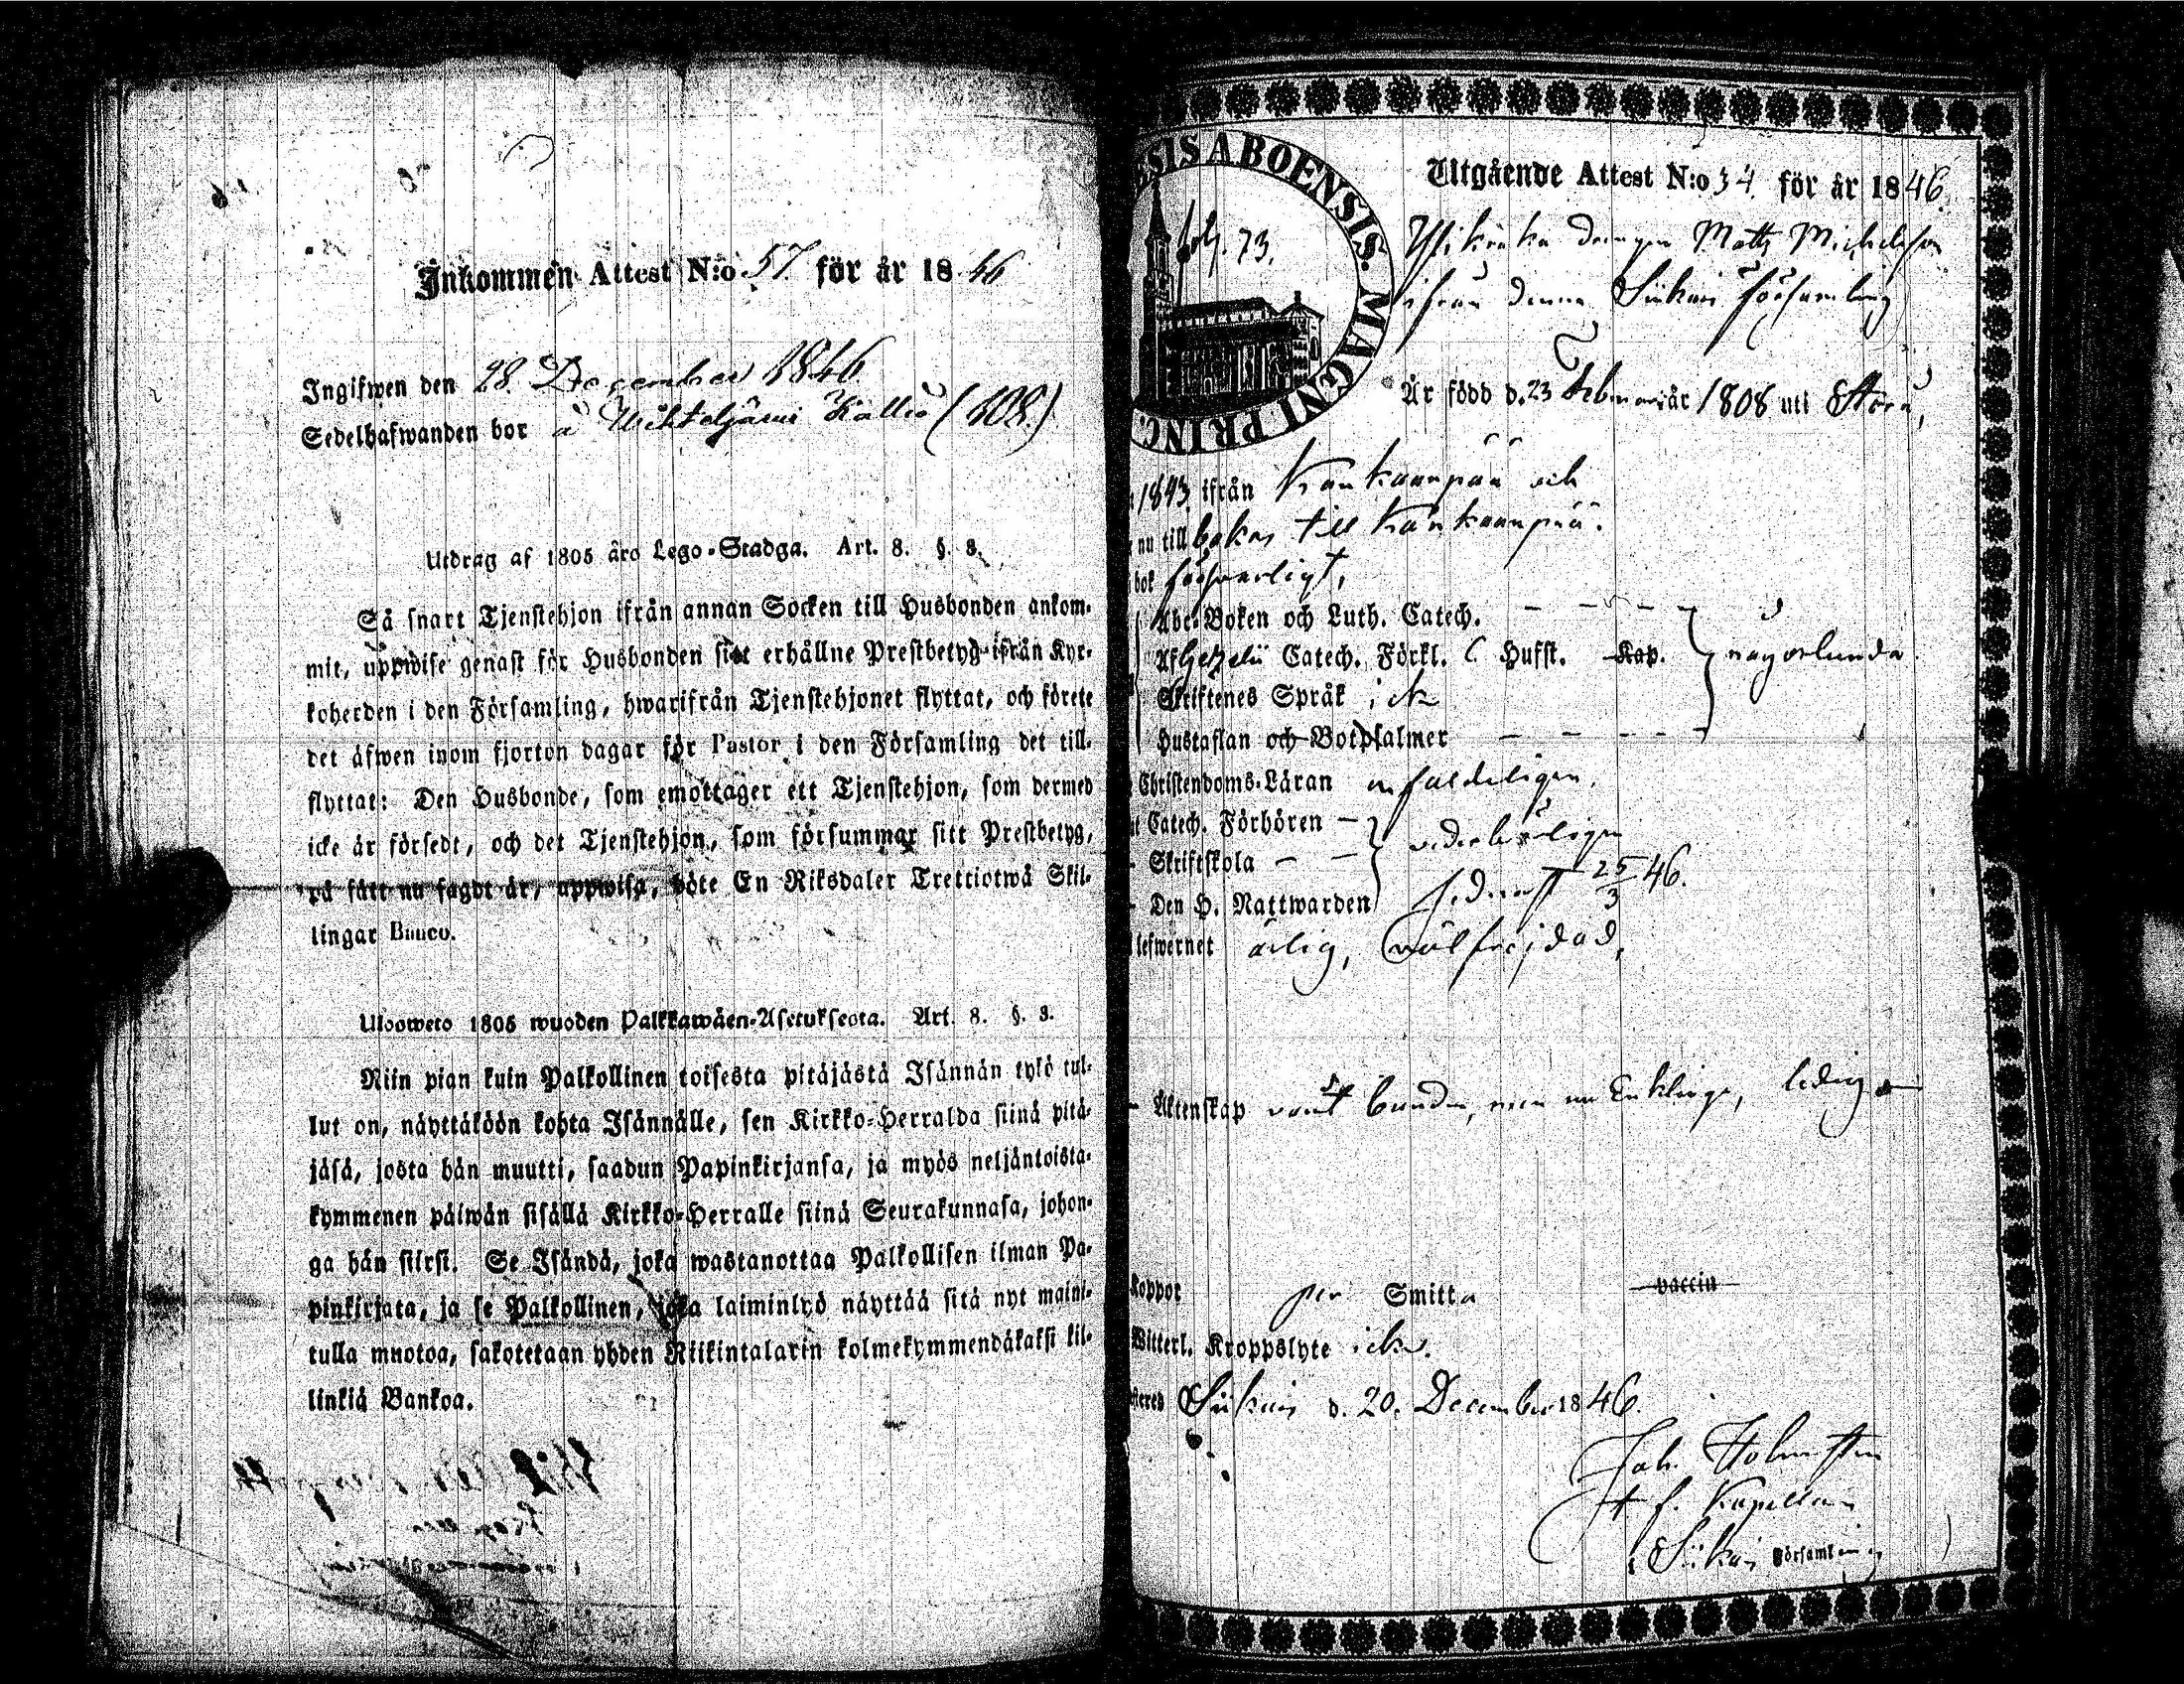 Inkommen Attest N:o 57. för år 1846
Ingifwen den 28 December 1846.
Sedelhafwanden bor å Kallio (108.)
Utdrag af 1805 års Lego-Stadga. Art. 8. §. 3.
Så snart Tjenstehjon ifrån annan Socken till Husbonden ankom-
mit, uppwise genast för Husbonden sitt erhållne Prestbetyg ifrån Kyr-
koherden i den Församling, hwarifrån Tjenstehjonet flyttat, och förete
det äfwen inom fjorton dagar för Pastor i den Församling det till-
flyttat: Den Husbonde, som emottager ett Tjenstehjon, som dermed
icke är försedt, och det Tjenstehjon, som försummar sitt Prestbetyg,
på sätt nu sagdt är, uppwisa, böte En Riksdaler Trettiotwå Skil-
lingar Banco.
Ulosweto 1805 wuoden Palkkawäen-Asetuksesta. Art. 8. §. 3.
Niin pian kuin Palkollinen toisesta pitäjästä Isännän tykö tul-
lut on, näyttäköön kohta Isännälle, sen Kirkko-Herralda siinä pitä-
jäsä, josta hän muutti, saadun Papinkirjansa, ja myös neljäntoista-
kymmenen päiwän sisällä Kirkko-Herralle siinä Seurakunnasa, johon-
ga hän siirsi. Se Isändä, joka wastanottaa Palkollisen ilman Pa-
pinkirjata, ja se Palkollinen, joka laiminlyö näyttää sitä nyt maini-
tulla muotoa, sakotetaan yhden Riikintalarin kolmekymmendäkaksi kil-
linkiä Bankoa.
SIS ABOENSIS. MAGNI PRINC
Utgående Attest N:o 34. för år 1846.
73.
drengen Matts Michelsson
ifrån denna Siikais församling
Är född d. 23 Februari år 1808 uti
1843 ifrån Kankaanpää och
nu tillbakas till Kankaanpää.
bok försvarligt,
Abc-Boken och Luth. Catech.
Af Gezelii Catech. Förkl. Hufst. Kap. någorlunda
Skriftenes Språk ick
Hustaflan och Botpsalmer
Christendoms-Läran enfaldeligen.
Catech. Förhören vederbörligen
Skriftskola
Den H. Nattwarden sednast 25/3 46.
lefwernet ärlig, välfrejdad,
Äktenskap varit bunden, men nu Enkling, ledig
koppor per Smitta vaccin
Witterl. Kroppslyte icke.
Siikais d. 20. December 1846.
Joh. Holmsten
Kapellan
i Siikais Församling